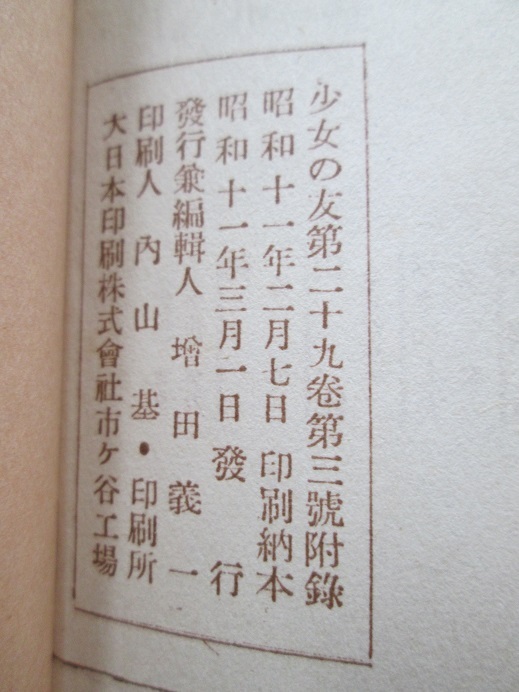 少女の友第二十九卷第三號附錄
昭和十一年二月七日 印刷納本
昭和十一年三月一日 發行
發行兼編輯人 增田義一
印刷人 內山基・印刷所
大日本印刷株式會社市ケ谷工場